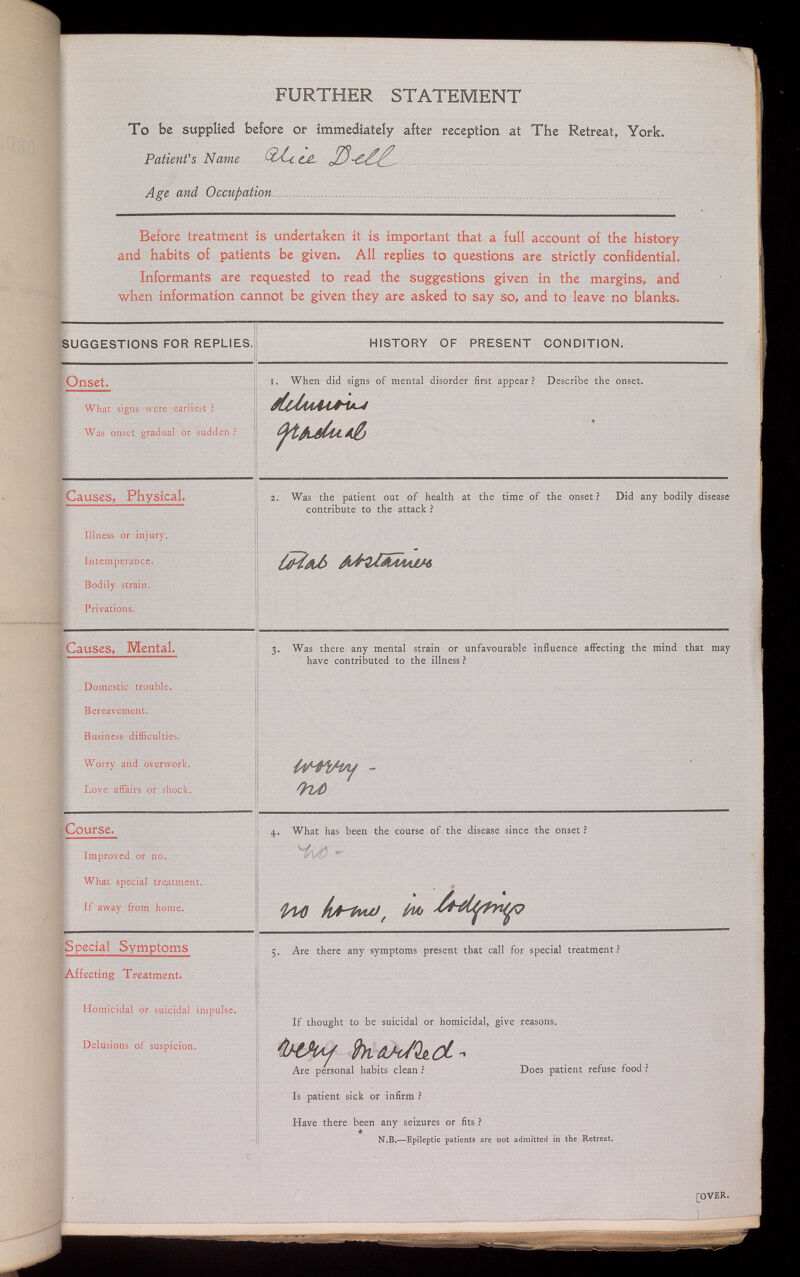 FURTHER STATEMENT
To be supplied before or immediately after reception at The Retreat, York.
Patient's Name Alice Dell
Age and Occupation
Before treatment is undertaken it is important that a full account of the history
and habits of patients be given. All replies to questions are strictly confidential.
Informants are requested to read the suggestions given in the margins, and
when information cannot be given they are asked to say so, and to leave no blanks.
SUGGESTIONS FOR REPLIES.
HISTORY OF PRESENT CONDITION.
Onset.
What signs were earliest ?
Was onset gradual or sudden ?
1. When did signs of mental disorder first appear ? Describe the onset.
delusions
gradual
Causes, Physical.
Illness or injury.
Intemperance.
Bodily strain.
Privations.
2. Was the patient out of health at the time of the onset ? Did any bodily disease
contribute to the attack ?
total abstainer
Causes, Mental.
Domestic trouble.
Bereavement.
Business difficulties.
Worry and overwork.
Love affairs or shock.
3. Was there any mental strain or unfavourable influence affecting the mind that may
have contributed to the illness ?
worry -
no
Course.
Improved or no.
What special treatment.
If away from home.
4. What has been the course of the disease since the onset ?
no -
no home, in lodgings
Special Symptoms
Affecting Treatment.
Homicidal or suicidal impulse.
Delusions of suspicion.
5. Are there any symptoms present that call for special treatment ?
If thought to be suicidal or homicidal, give reasons.
very marked -
Are personal habits clean ? Does patient refuse food ?
Is patient sick or infirm ?
Have there been any seizures or fits ?
N.B.—Epileptic patients are not admitted in the Retreat.
[OVER.